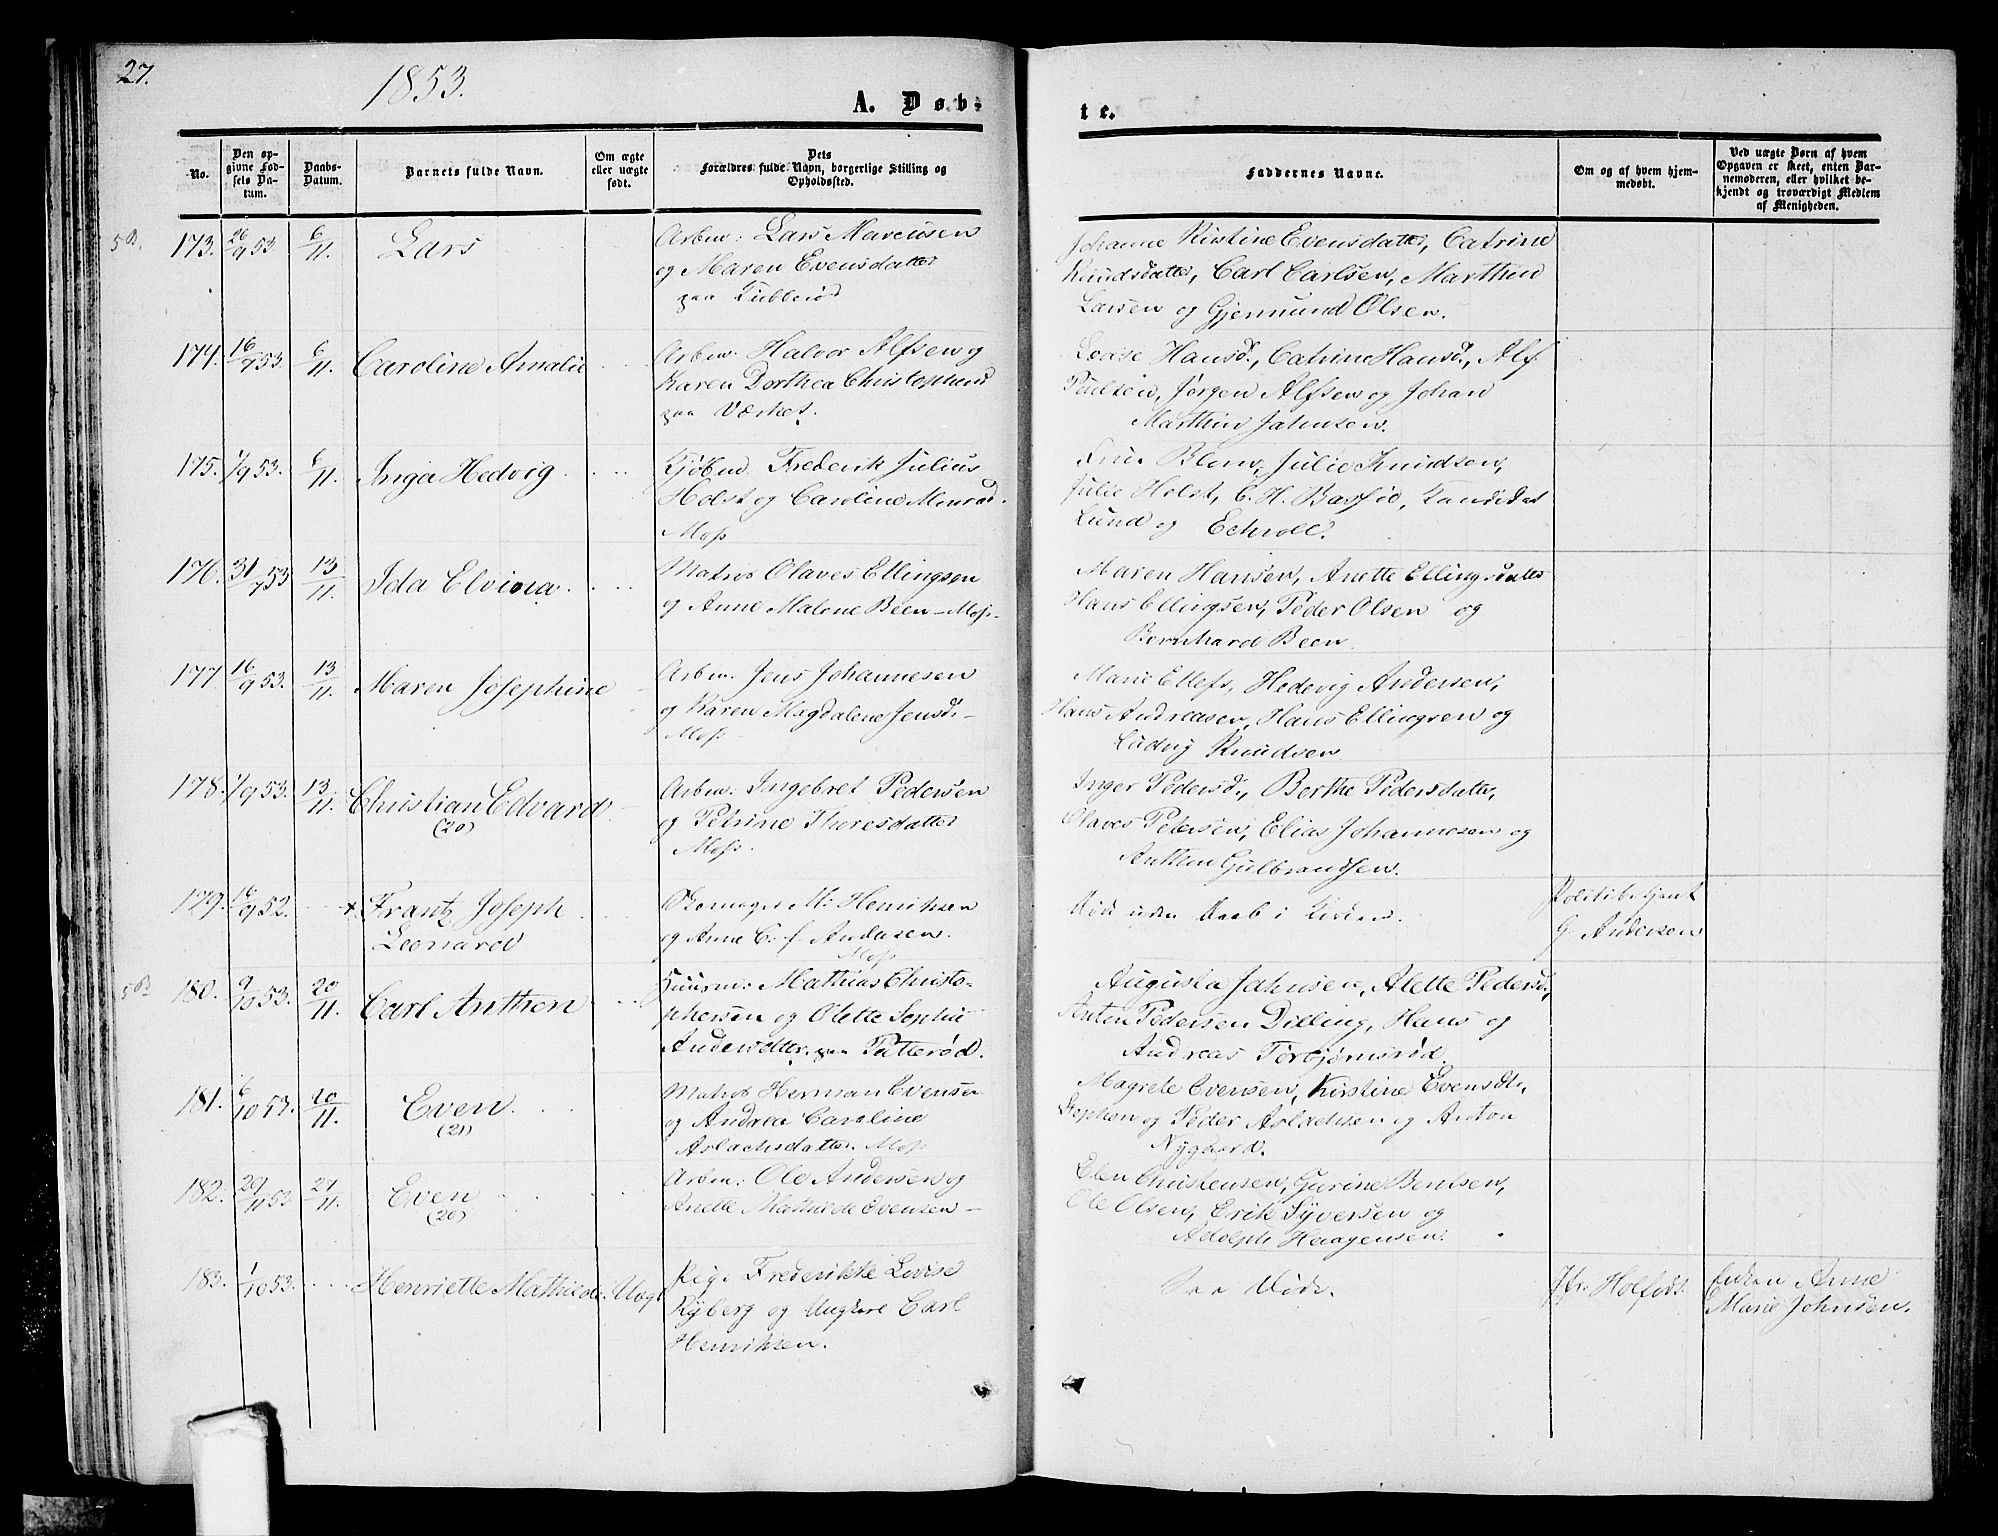 27.
1853.
A. Døb-
te.
No.
Den op-
givne Fød-
sels Da-
tum.
Daabs-
Datum.
Barnets fulde Navn.
Om ægte
eller uægte
født.
Dets
Forældres fulde Navn, borgerlige Stilling og
Opholdssted.
Faddernes Navne.
Om og af hvem hjem-
medøbt.
Ved uægte Børn af hvem
Opgaven er skeet, enten Bar-
nemoderen, eller hvilket be-
kjendt og troværdigt Medlem
af Menigheden.
173. 26/9 53 6/11. Lars
Arbm: Lars Marcusen
og Maren Evensdatter
paa
Johanne Kirstine Evensdatter, Catrine
Knudsdatter, Carl Carlsen, Marthin
Larsen og Gjermund Olsen.
174. 16/7 53. 6/11. Caroline Amalie
Arbm: Halvor Alfsen og
Karen Dorthea Christophersd
paa Værket.
Lovise Hansd., Catrine Hansd., Alf
Paulsen, Jørgen Alfsen og Johan
Marthin Jahnsen.
175. 1/9 53. 6/11. Inga Hedvig
Kjøbm. Frederik Julius
Holst og Caroline Monrad.
Moss
Frue Blom, Julie Knudsen,
Julie Holst, C. H. Kandidat
Lund og
176. 31/7 53 13/11. Ida Elvina
Matros Olaves Ellingsen
og Anne Malene Been - Moss.
Maren Hansen, Anette Ellingsdatter
Hans Ellingsen, Peder Olsen og
Bernhard Been.
177. 16/9 53. 13/11. Maren Josephine
Arbm. Jens Johannesen
og Karen Magdalene Jensd. -
Moss
Marie Ellefs, Hedevig Andersen,
Hans Andreasen, Hans Ellingsen og
Ludvig Knudsen
178. 1/9 53. 13/11. Christian Edvard.
(20)
Arbm: Ingebret Pedersen
og Petrine Thoresdatter
Moss.
Inger Pedersd., Berthe Pedersdatter,
Olaves Petersen, Elias Johannesen og
Anthon Gulbrandsen.
179. 16/9 52. + Frantz Joseph
Leonard
Skomager M: Henriksen
og Anne C. f. Andersen.
Moss
Død uden Daab i Kirken.
Politibetjent
G. Andersen
180. 9/10 53. 20/11. Carl Anthon
Huusm: Mathias Christo-
phersen og Olette Sophie
Andersdatter paa Patterød.
Augusta Jahnsen, Alette Pedersd.,
Anton Pedersen Dilling, Hans og
Andreas Torbjørnsrød.
181. 6/10 53. 20/11. Even.
(21)
Matros Herman Evensen
og Andrea Caroline
Aslachsdatter. Moss.
Magrete Evensen, Kirstine Evensdt.,
Stephen og Peder Aslachsen og Anton
Nygaard.
182. 29/11 53 27/11. Even
(20)
Arbm: Ole Andersen og
Anette Mathilde Evensen -
Elen Christensen, Gurine Bentsen,
Ole Olsen, Erik Syversen og
Adolph Haagensen.
183. 1/10 53. Henriette Mathilde. Uægt
Pige Frederikke Lovise
Ryberg og Ungkarl Carl
Henriksen.
Død.
Jfr. Holfeds. Enken Anne
Marie Johnsen.